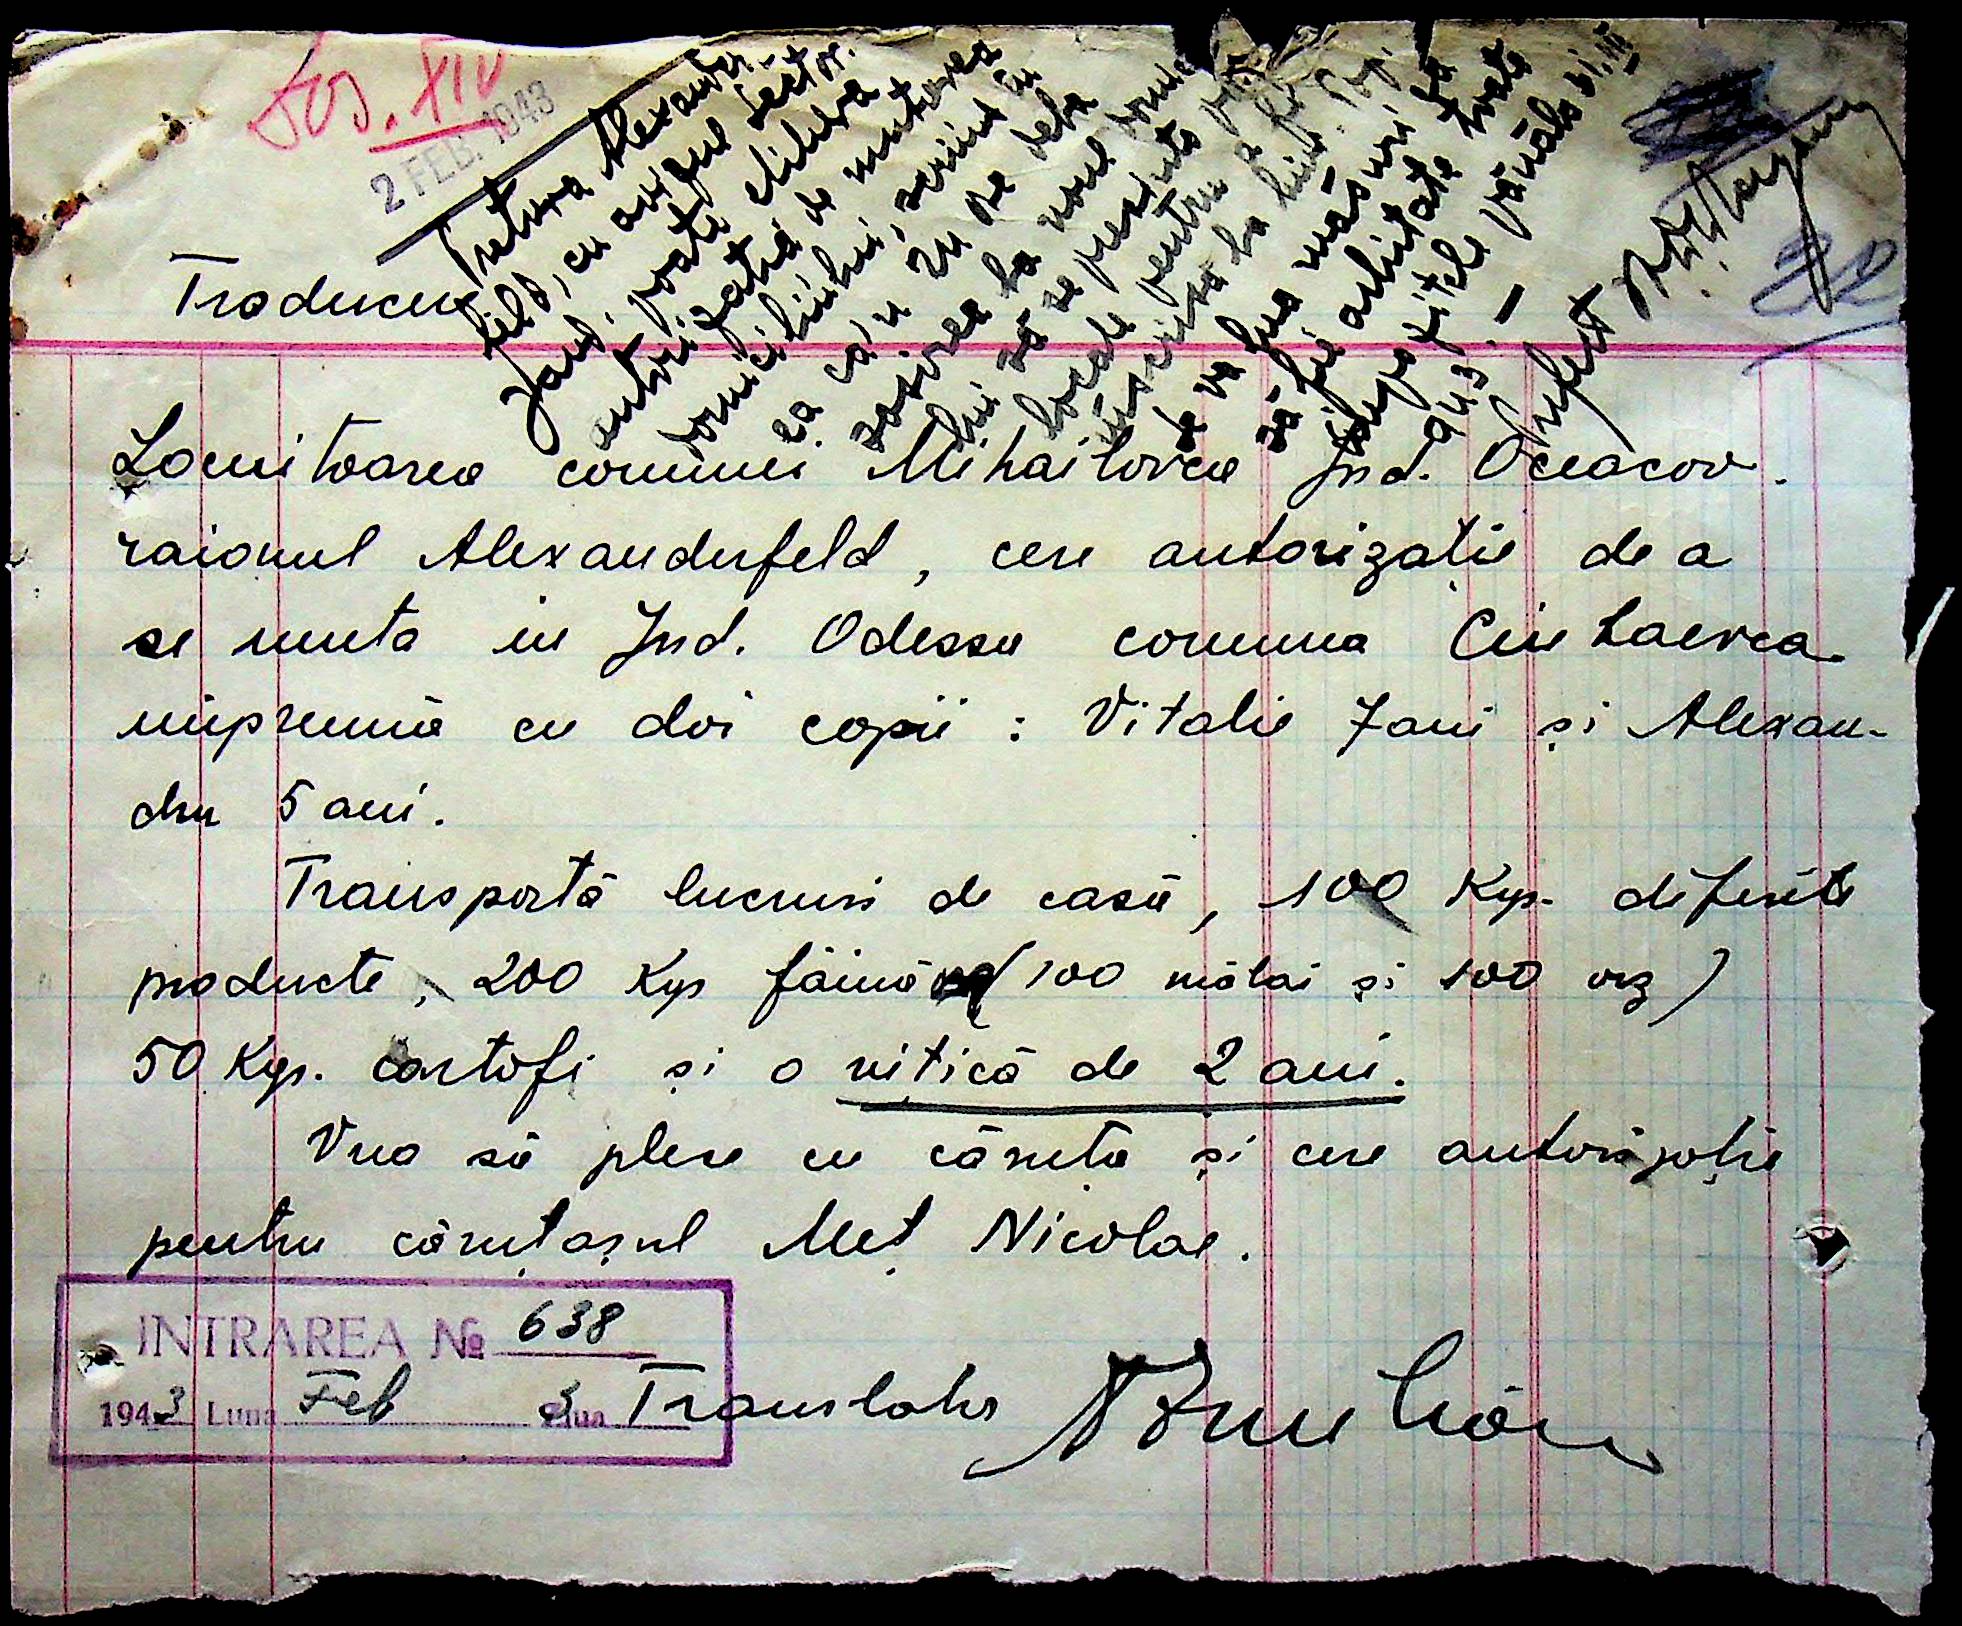 Dos. XIV
2 FEB. 1943
Pretura Alexander-
feld, cu avizul Sect.
Jand., poate elibera
autorizația de mutarea
domiciliului, scriind
ca când se deta
sosirea la noul domici-
liu să se prezinte
locale pentru a fi
înscrisă la
se va lua măsuri ca
să fie achitate toate
impozitele până la 31.III
943. —
Prefect
Traducere
Locuitoarea comunei Mihailovca Jud. Oceacov.
raionul Alexanderfeld, cere autorizație de a
se muta in Jud. Odessa comuna
împreună cu doi copii : Vitalie 7 ani și Alexan-
dru 5 ani.
Transportă lucruri de casă, 100 Kgr. diferite
producte, 200 Kgr făină (100 mălai și 100 orz)
50 Kgr. cartofi și o vitică de 2 ani.
Vrea să plece cu căruța și cere autorizație
pentru căruțașul Meț Nicolae.
INTRAREA № 638
1943 Luna Feb Ziua 3
Translator